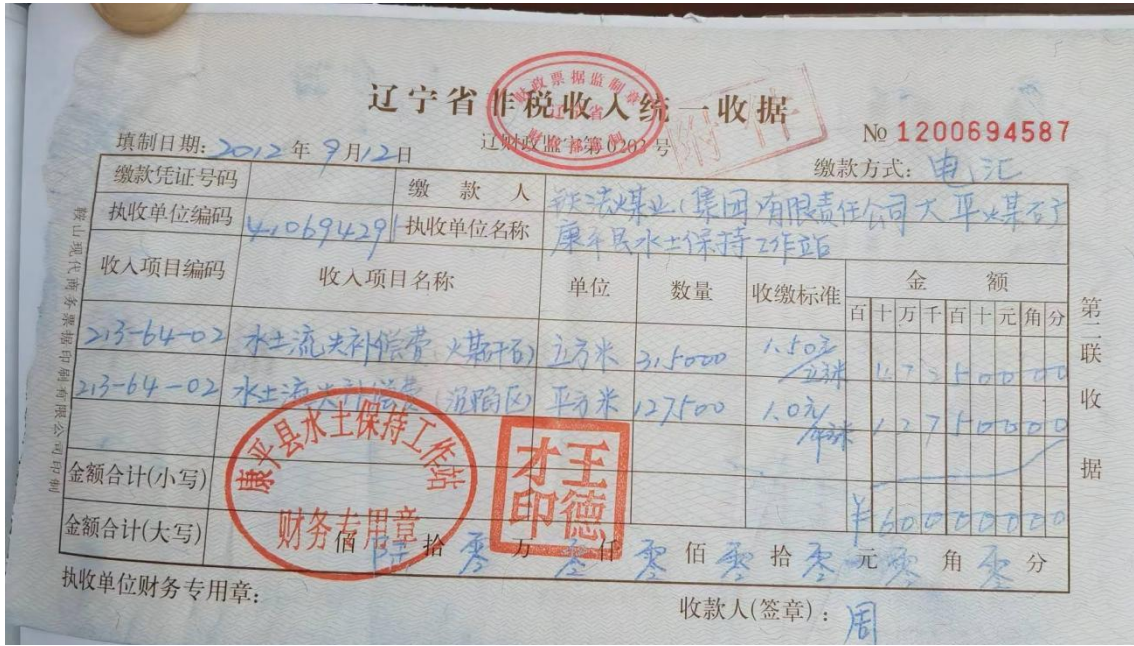 辽宁省非税收入统一收据
财政票据监制章
辽宁省
财政部监制
附件
辽财政监字第0203号
№ 1200694587
填制日期: 2012年9月12日
缴款方式: 电汇
缴款凭证号码 缴款人 铁法煤业(集团)有限责任公司大平煤矿
执收单位编码 410694291 执收单位名称 康平县水土保持工作站
收入项目编码 收入项目名称 单位 数量 收缴标准 金额
百 十 万 千 百 十 元 角 分
213-64-02 水土流失补偿费(煤矸石) 立方米 315000 1.50元/立方米
213-64-02 水土流失补偿费(沉陷区) 平方米 127500 1.0元/平方米 1 2 7 5 0 0 0 0
金额合计(小写) ¥ 6 0 0 0 0 0 0 0
金额合计(大写) 佰 陆 拾 零 万 零 仟 零 佰 零 拾 零 元 零 角 零 分
康平县水土保持工作站
财务专用章
王德才印
执收单位财务专用章:
收款人(签章): 周
第二联 收据
鞍山现代商务票据印刷有限公司印制